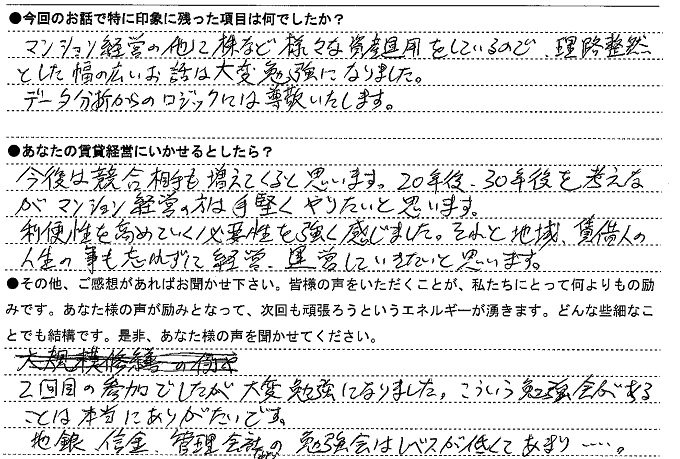 ●今回のお話で特に印象に残った項目は何でしたか？
マンション経営の他にて株など様々な資産運用をしているので、理路整然
とした幅の広いお話は大変勉強になりました。
データ分析からのロジックには尊敬いたします。
●あなたの賃貸経営にいかせるとしたら？
今後は競合相手も増えてくると思います。20年後、30年後を考えな
がマンション経営の方は手堅くやりたいと思います。
利便性を高めていく必要性を強く感じました。それと地域、賃借人の
人生の事も忘れずに経営、運営していきたいと思います。
●その他、ご感想があればお聞かせ下さい。皆様の声をいただくことが、私たちにとって何よりもの励
みです。あなた様の声が励みとなって、次回も頑張ろうというエネルギーが湧きます。どんな些細なこ
とでも結構です。是非、あなた様の声を聞かせてください。
大規模修繕の
2回目の参加でしたが大変勉強になりました。こういう勉強会がある
ことは本当にありがたいです。
地銀、信金、管理会社の勉強会はレベルが低くてあまり……。